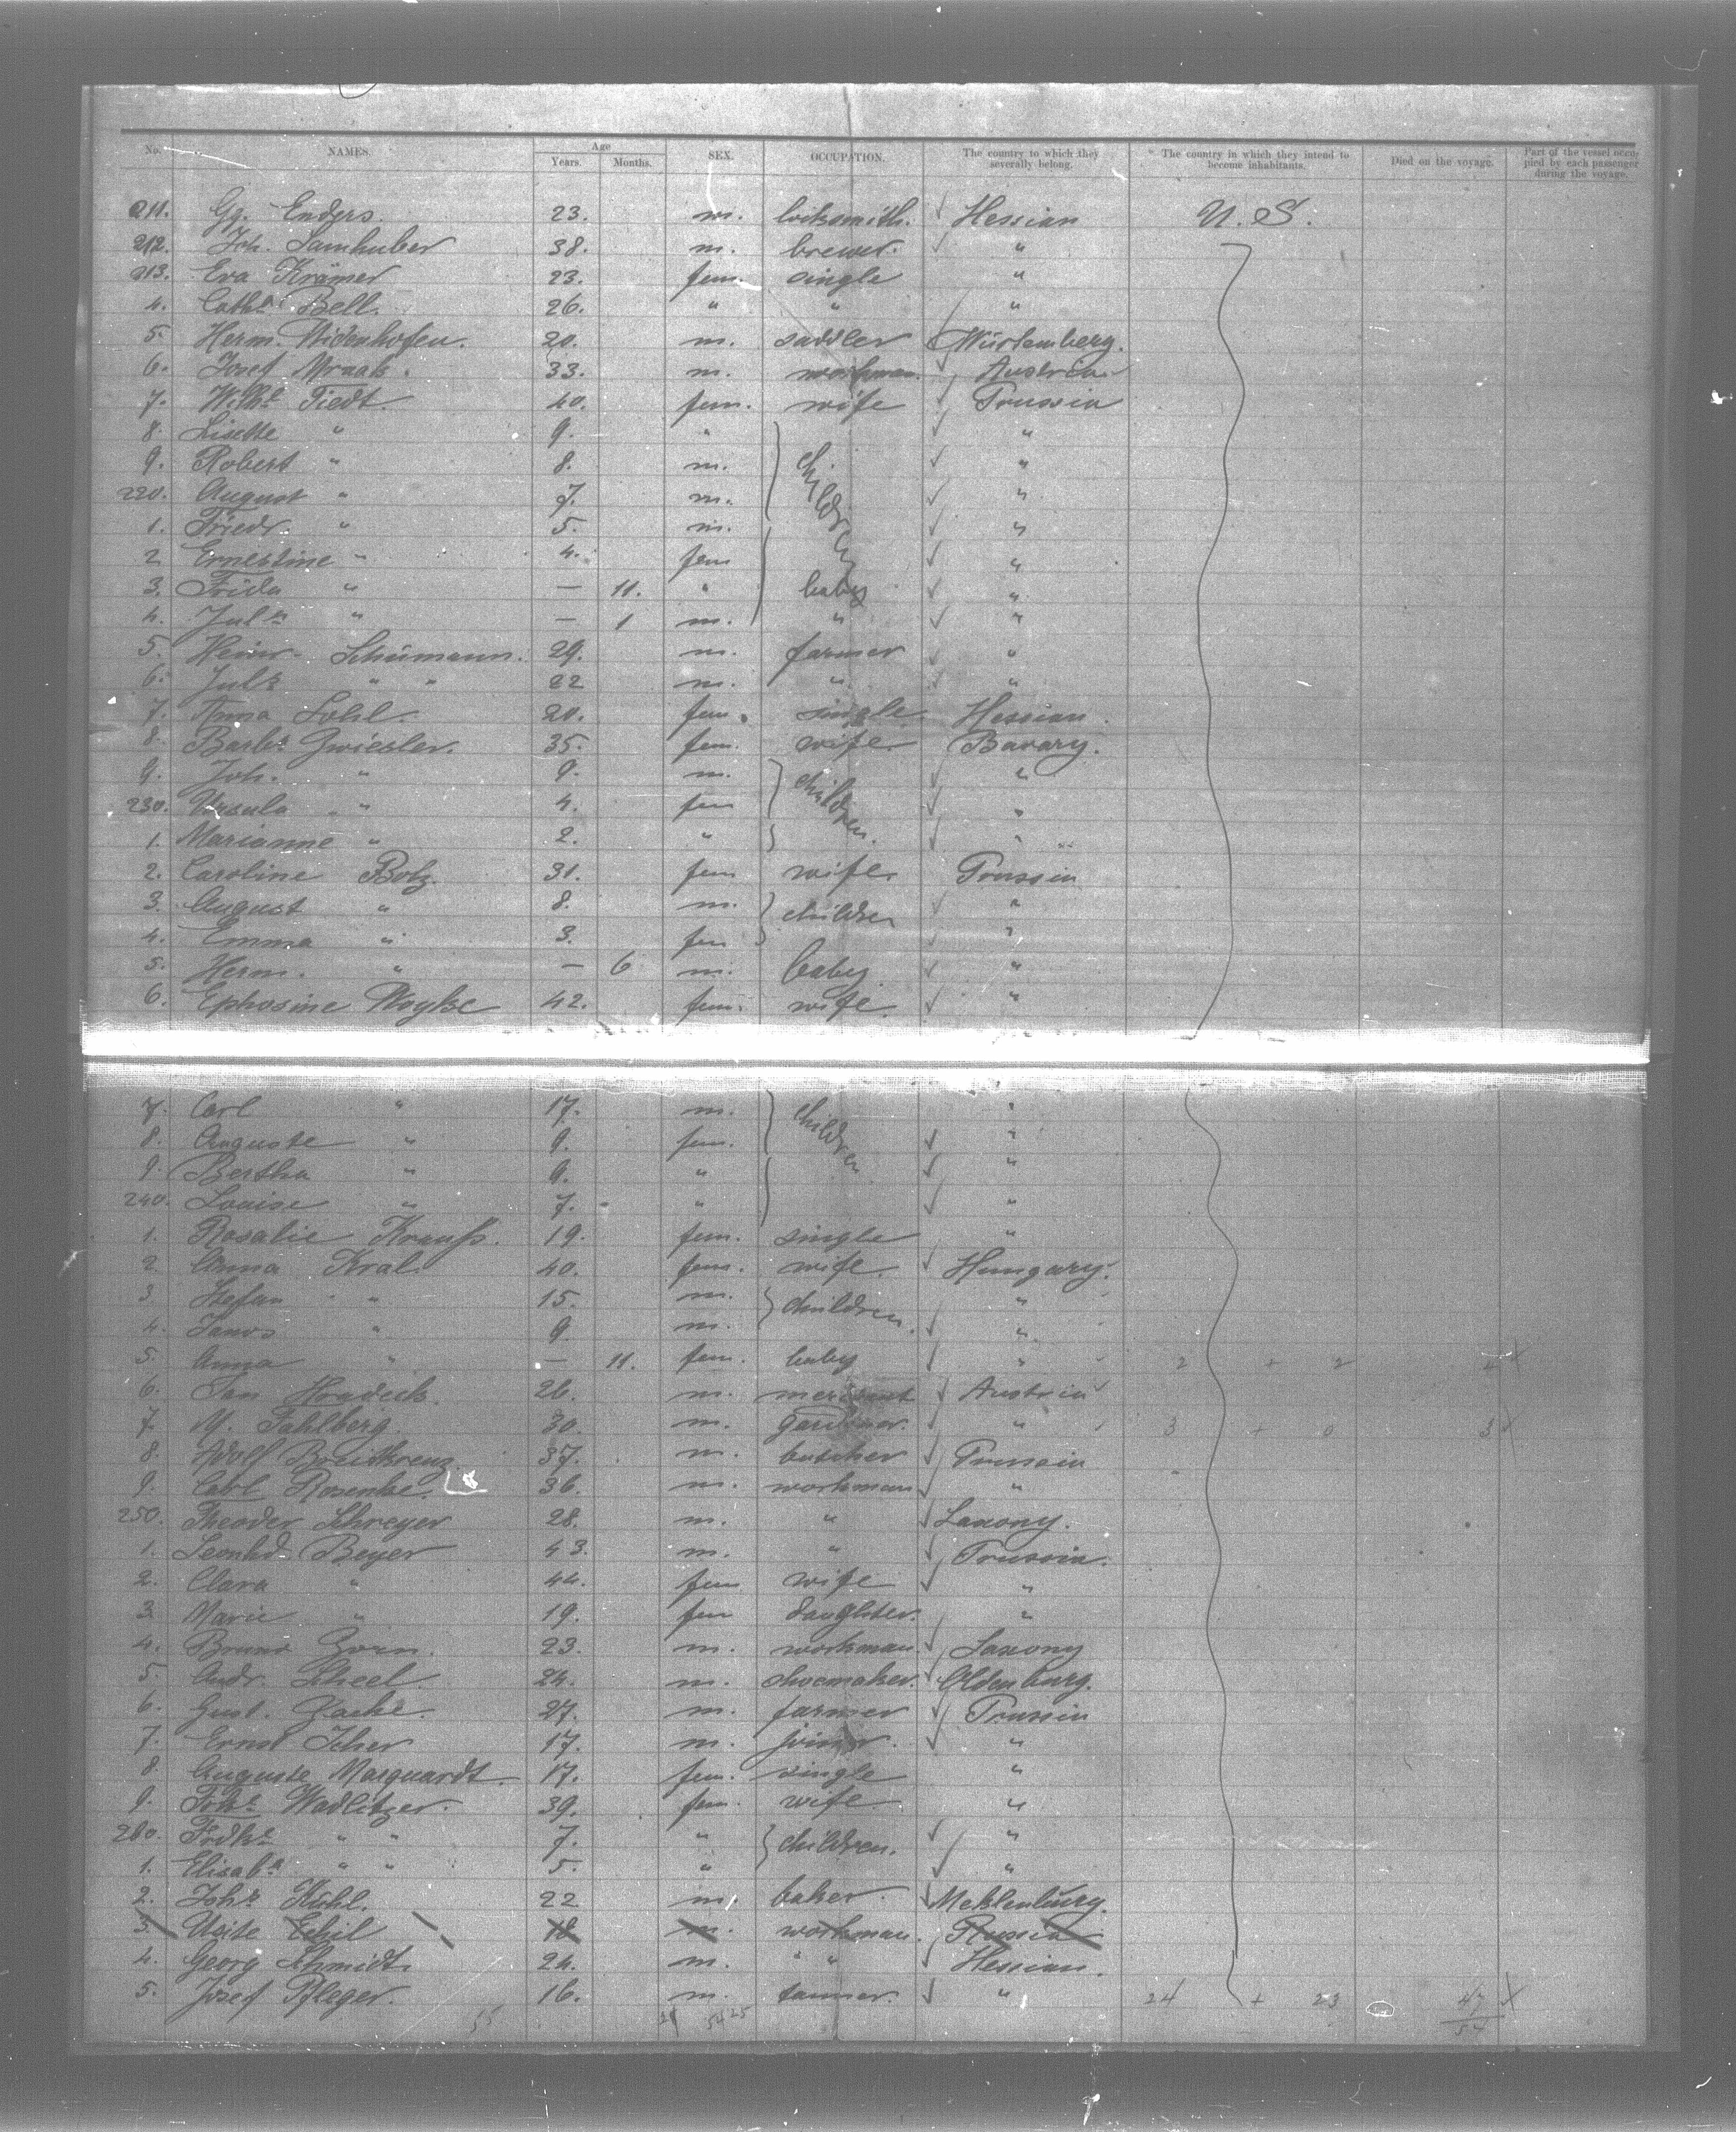 No. NAMES. Age Years. Months. SEX. OCCUPATION. The country to which they severally belong. The country in which they intend to become inhabitants. Died on the voyage. Part of the vessel occupied by each passenger during the voyage.
211. Gg. Enders. 23. m. locksmith. Hessian U. S.
212. Joh. Samhuber 38. m. brewer. "
213. Eva Krämer 23. fem. single "
4. Cath. Bell. 26. " " "
5. Herm. Widenhofen. 20. m. saddler Würtemberg.
6. Josef 33. m. workman. Austria
7. Wilh. Tiedt. 40. fem. wife Prussia
8. Lisette " 9. " children "
9. Robert " 8. m. "
220. August " 7. m. "
1. Friedr. " 5. m. "
2 Ernestine " 4. fem "
3. Frida " — 11. " baby "
4. Jul. " — 1 m. " "
5. Heinr. Schümann. 29. m. farmer "
6. Jul. " " 22 m. " "
7. Anna Lohl. 20. fem. single Hessian.
8. Barb. Zwiesler. 35. fem. wife Bavary.
9. Joh. " 9. m. children. "
230. Ursula " 4. fem "
1. Marianne " 2. " "
2. Caroline Bolz. 31. fem wife Prussia
3. August " 8. m. children "
4. Emma " 3. fem "
5. Herm. " — 6 m. baby "
6. Ephosine Woyke 42. fem. wife. "
7. Carl " 17. m. children "
8. Auguste " 9. fem. "
9. Bertha " 9. " "
240. Louise " 7. " "
1. Rosalie Krauß. 19. fem. single "
2. Anna Kral. 40. fem. wife. Hungary.
3 Stefan " 15. m. children. "
4. Janos " 9. m. "
5. Anna " — 11. fem. baby " 2 + 2 4 X
6. Jan Hradeck. 26. m. merchant Austria
7. M. Fahlberg. 30. m. gardener. " 3 + 0 3 X
8. Adolf Breitkreuz. 37. m. butcher Prussia
9. Carl Rosenke. 36. m. workman "
250. Theodor Schreyer 28. m. " Saxony.
1. Leonhd. Beyer 43. m. " Prussia.
2. Clara " 44. fem wife "
3. Marie " 19. fem daughter. "
4. Bruno Zorn. 23. m. workman. Saxony
5. Andr. Scheel. 24. m. shoemaker. Oldenburg.
6. Gust. Zache. 27. m. farmer Prussia
7. Ernst Icher 17. m. joiner. "
8. Auguste Marquardt. 17. fem. single "
9. Joh. Wadlitzer. 39. fem. wife "
260. Fredke " " 7. " children. "
1. Elisab. " " 5. " "
2. Joh. Kühl. 22 m. baker. Meklenburg.
3. 18 m. workman. Russia
4. Georg Schmidt. 24. m. " " Hessian.
5. Josef Pfleger. 16. m. tanner. " 24 + 23 47 X
55 29 54 25 54